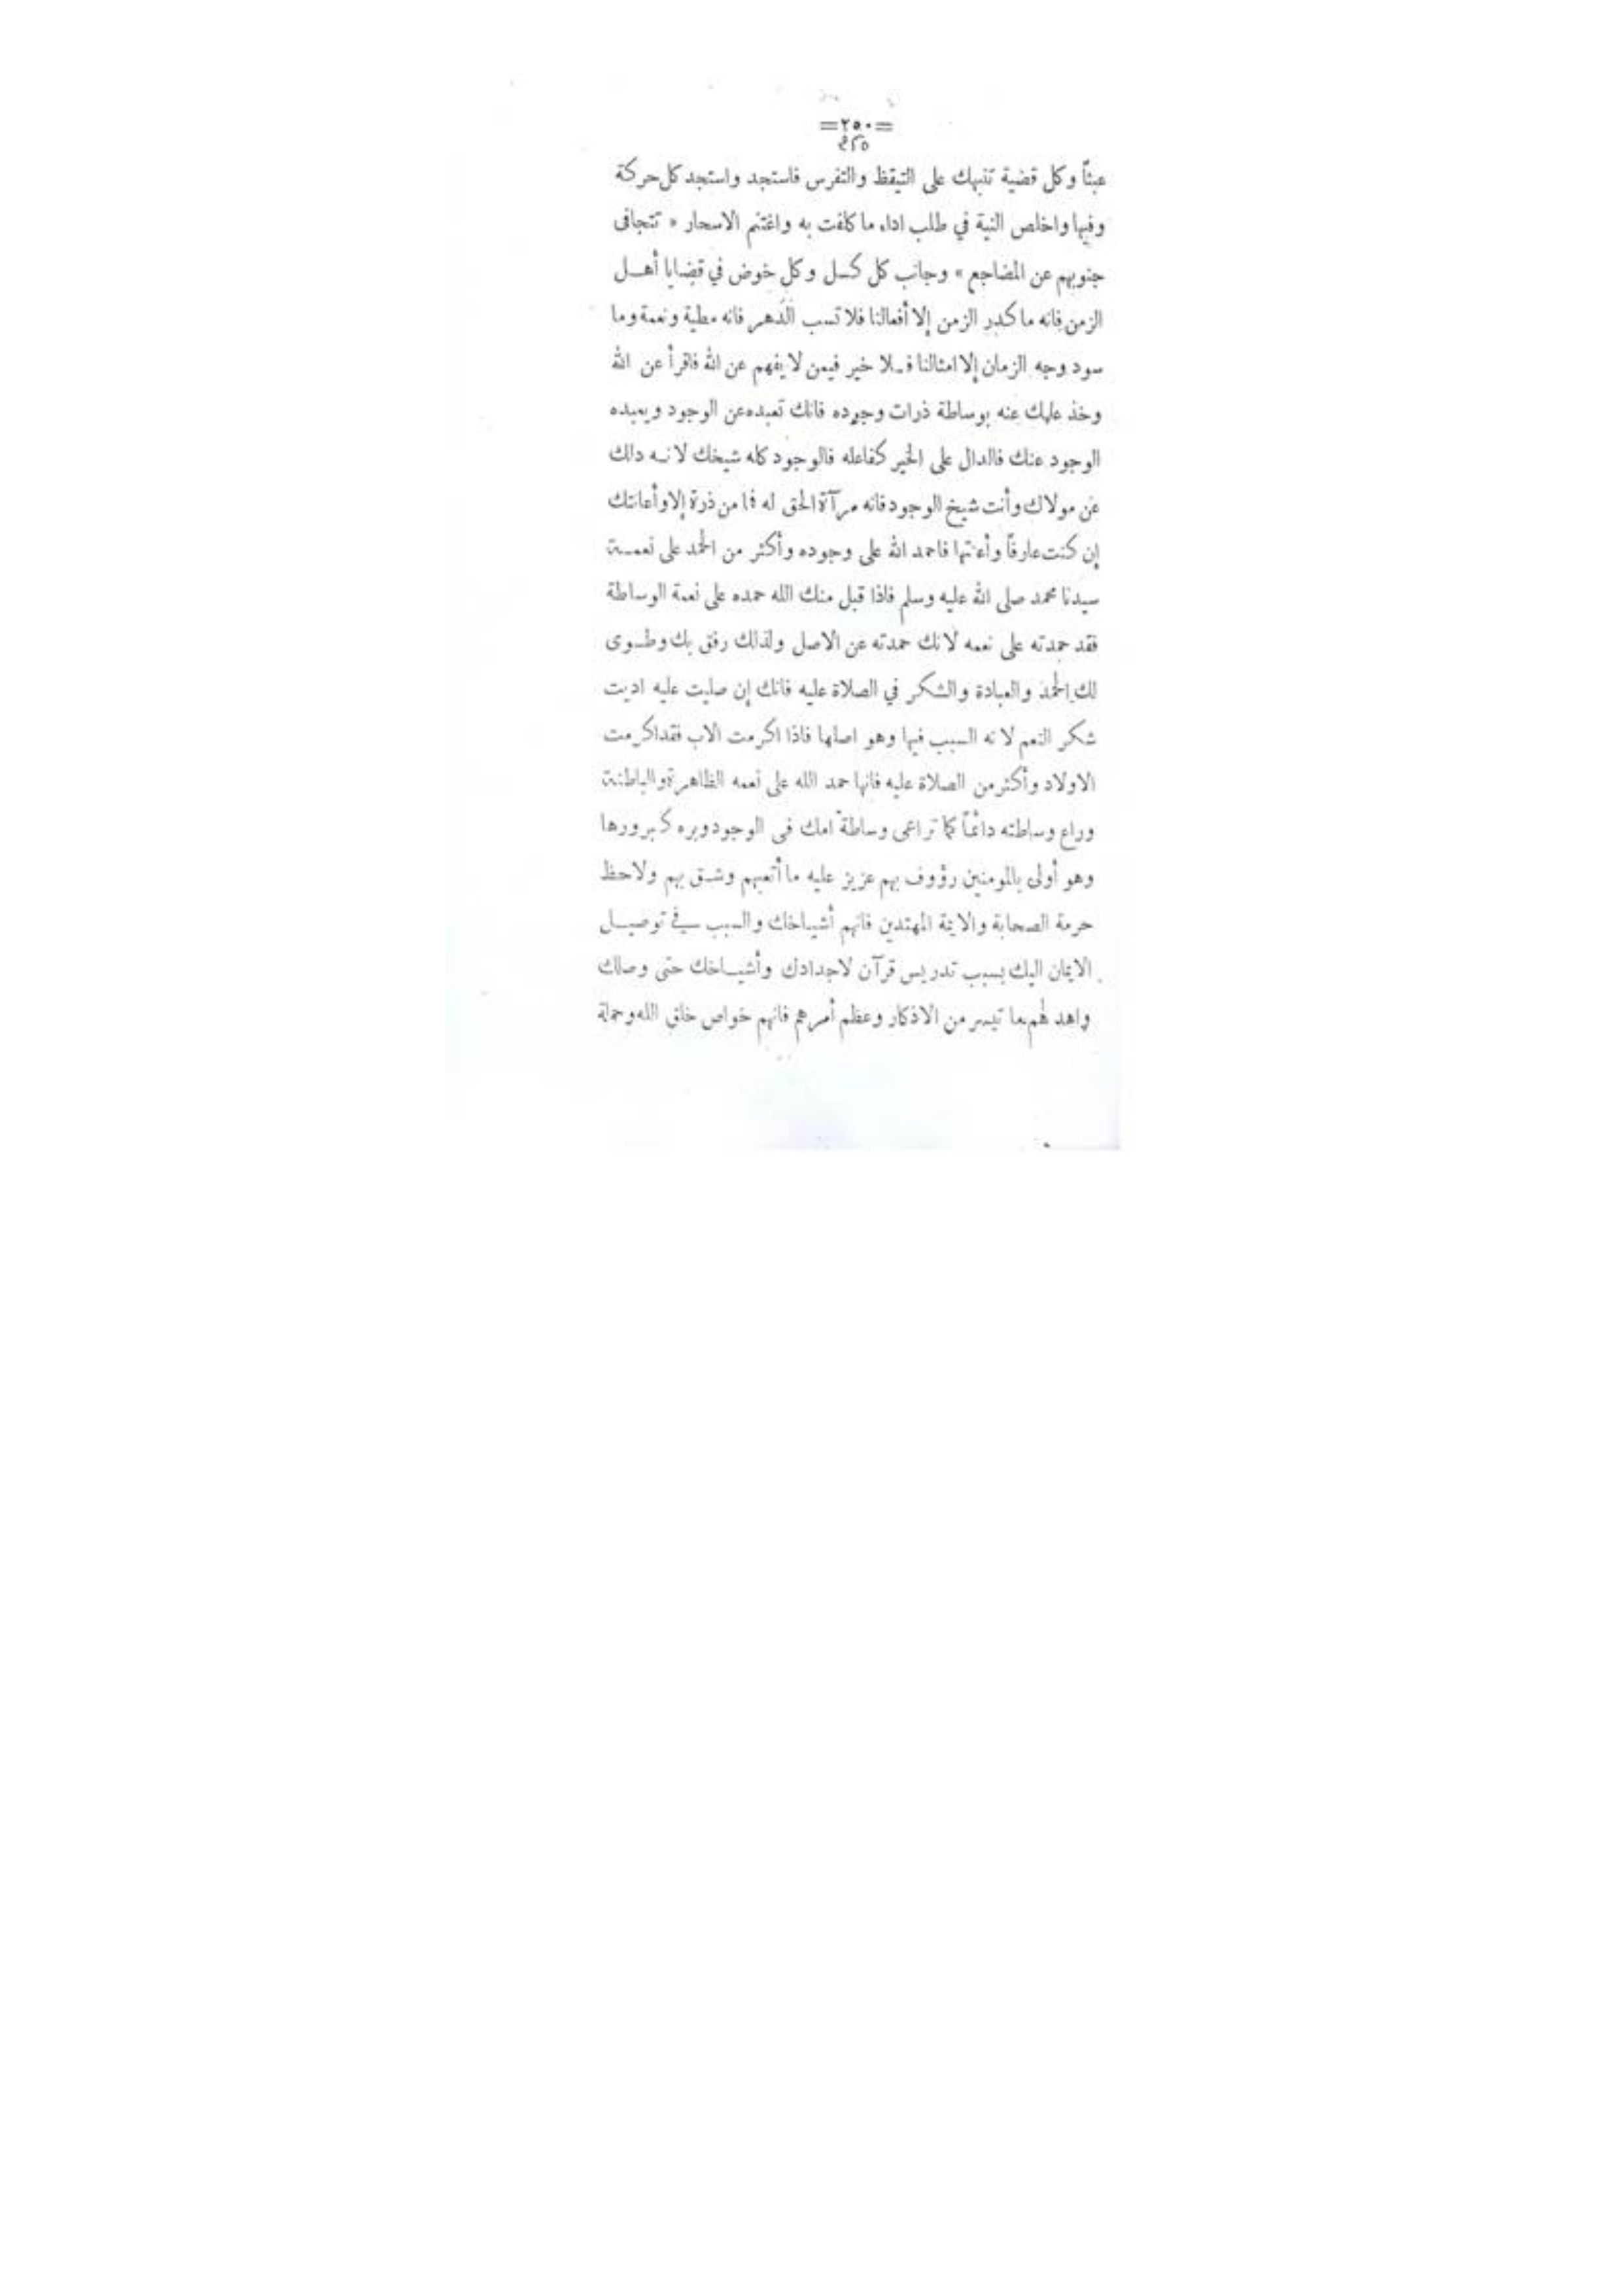 =٢٥٠=
عبثاً وكل قضية تنبهك على التيقظ والتفرس فاستجد واستجد كل حركة
وفيها واخلص النية في طلب اداء ما كلفت به واغتنم الاسحار « تتجافى
جنوبهم عن المضاجع » وجانب كل كسل وكل خوض في قضايا أهل
الزمن فانه ما كدر الزمن إلا أفعالنا فلا تسب الدهر فانه مطية ونعمة وما
سود وجه الزمان إلا امثالنا فلا خير فيمن لا يفهم عن الله فاقرأ عن الله
وخذ علمك عنه بوساطة ذرات وجوده فانك تعبده عن الوجود ويعبده
الوجود عنك فالدال على الخير كفاعله فالوجود كله شيخك لانه دلك
عن مولاك وأنت شيخ الوجود فانه مرآة الحق له فما من ذرة إلا وأعانتك
إن كنت عارفاً وأعنتها فاحمد الله على وجوده وأكثر من الحمد على نعمة
سيدنا محمد صلى الله عليه وسلم فاذا قبل منك الله حمده على نعمة الوساطة
فقد حمدته على نعمه لانك حمدته عن الاصل ولذلك رفق بك وطوى
لك الحمد والعبادة والشكر في الصلاة عليه فانك إن صليت عليه اديت
شكر النعم لانه السبب فيها وهو اصلها فاذا اكرمت الاب فقد اكرمت
الاولاد وأكثر من الصلاة عليه فانها حمد الله على نعمه الظاهرة والباطنة
وراع وساطته دائماً كما تراعى وساطة امك فى الوجود وبره كبرورها
وهو أولى بالمومنين رؤوف بهم عزيز عليه ما أتعبهم وشق بهم ولاحظ
حرمة الصحابة والايمة المهتدين فانهم أشياخك والسبب في توصيل
الايمان اليك بسبب تدريس قرآن لاجدادك وأشياخك حتى وصلك
واهد لهم بما تيسر من الاذكار وعظم أمرهم فانهم خواص خلق الله وحملة